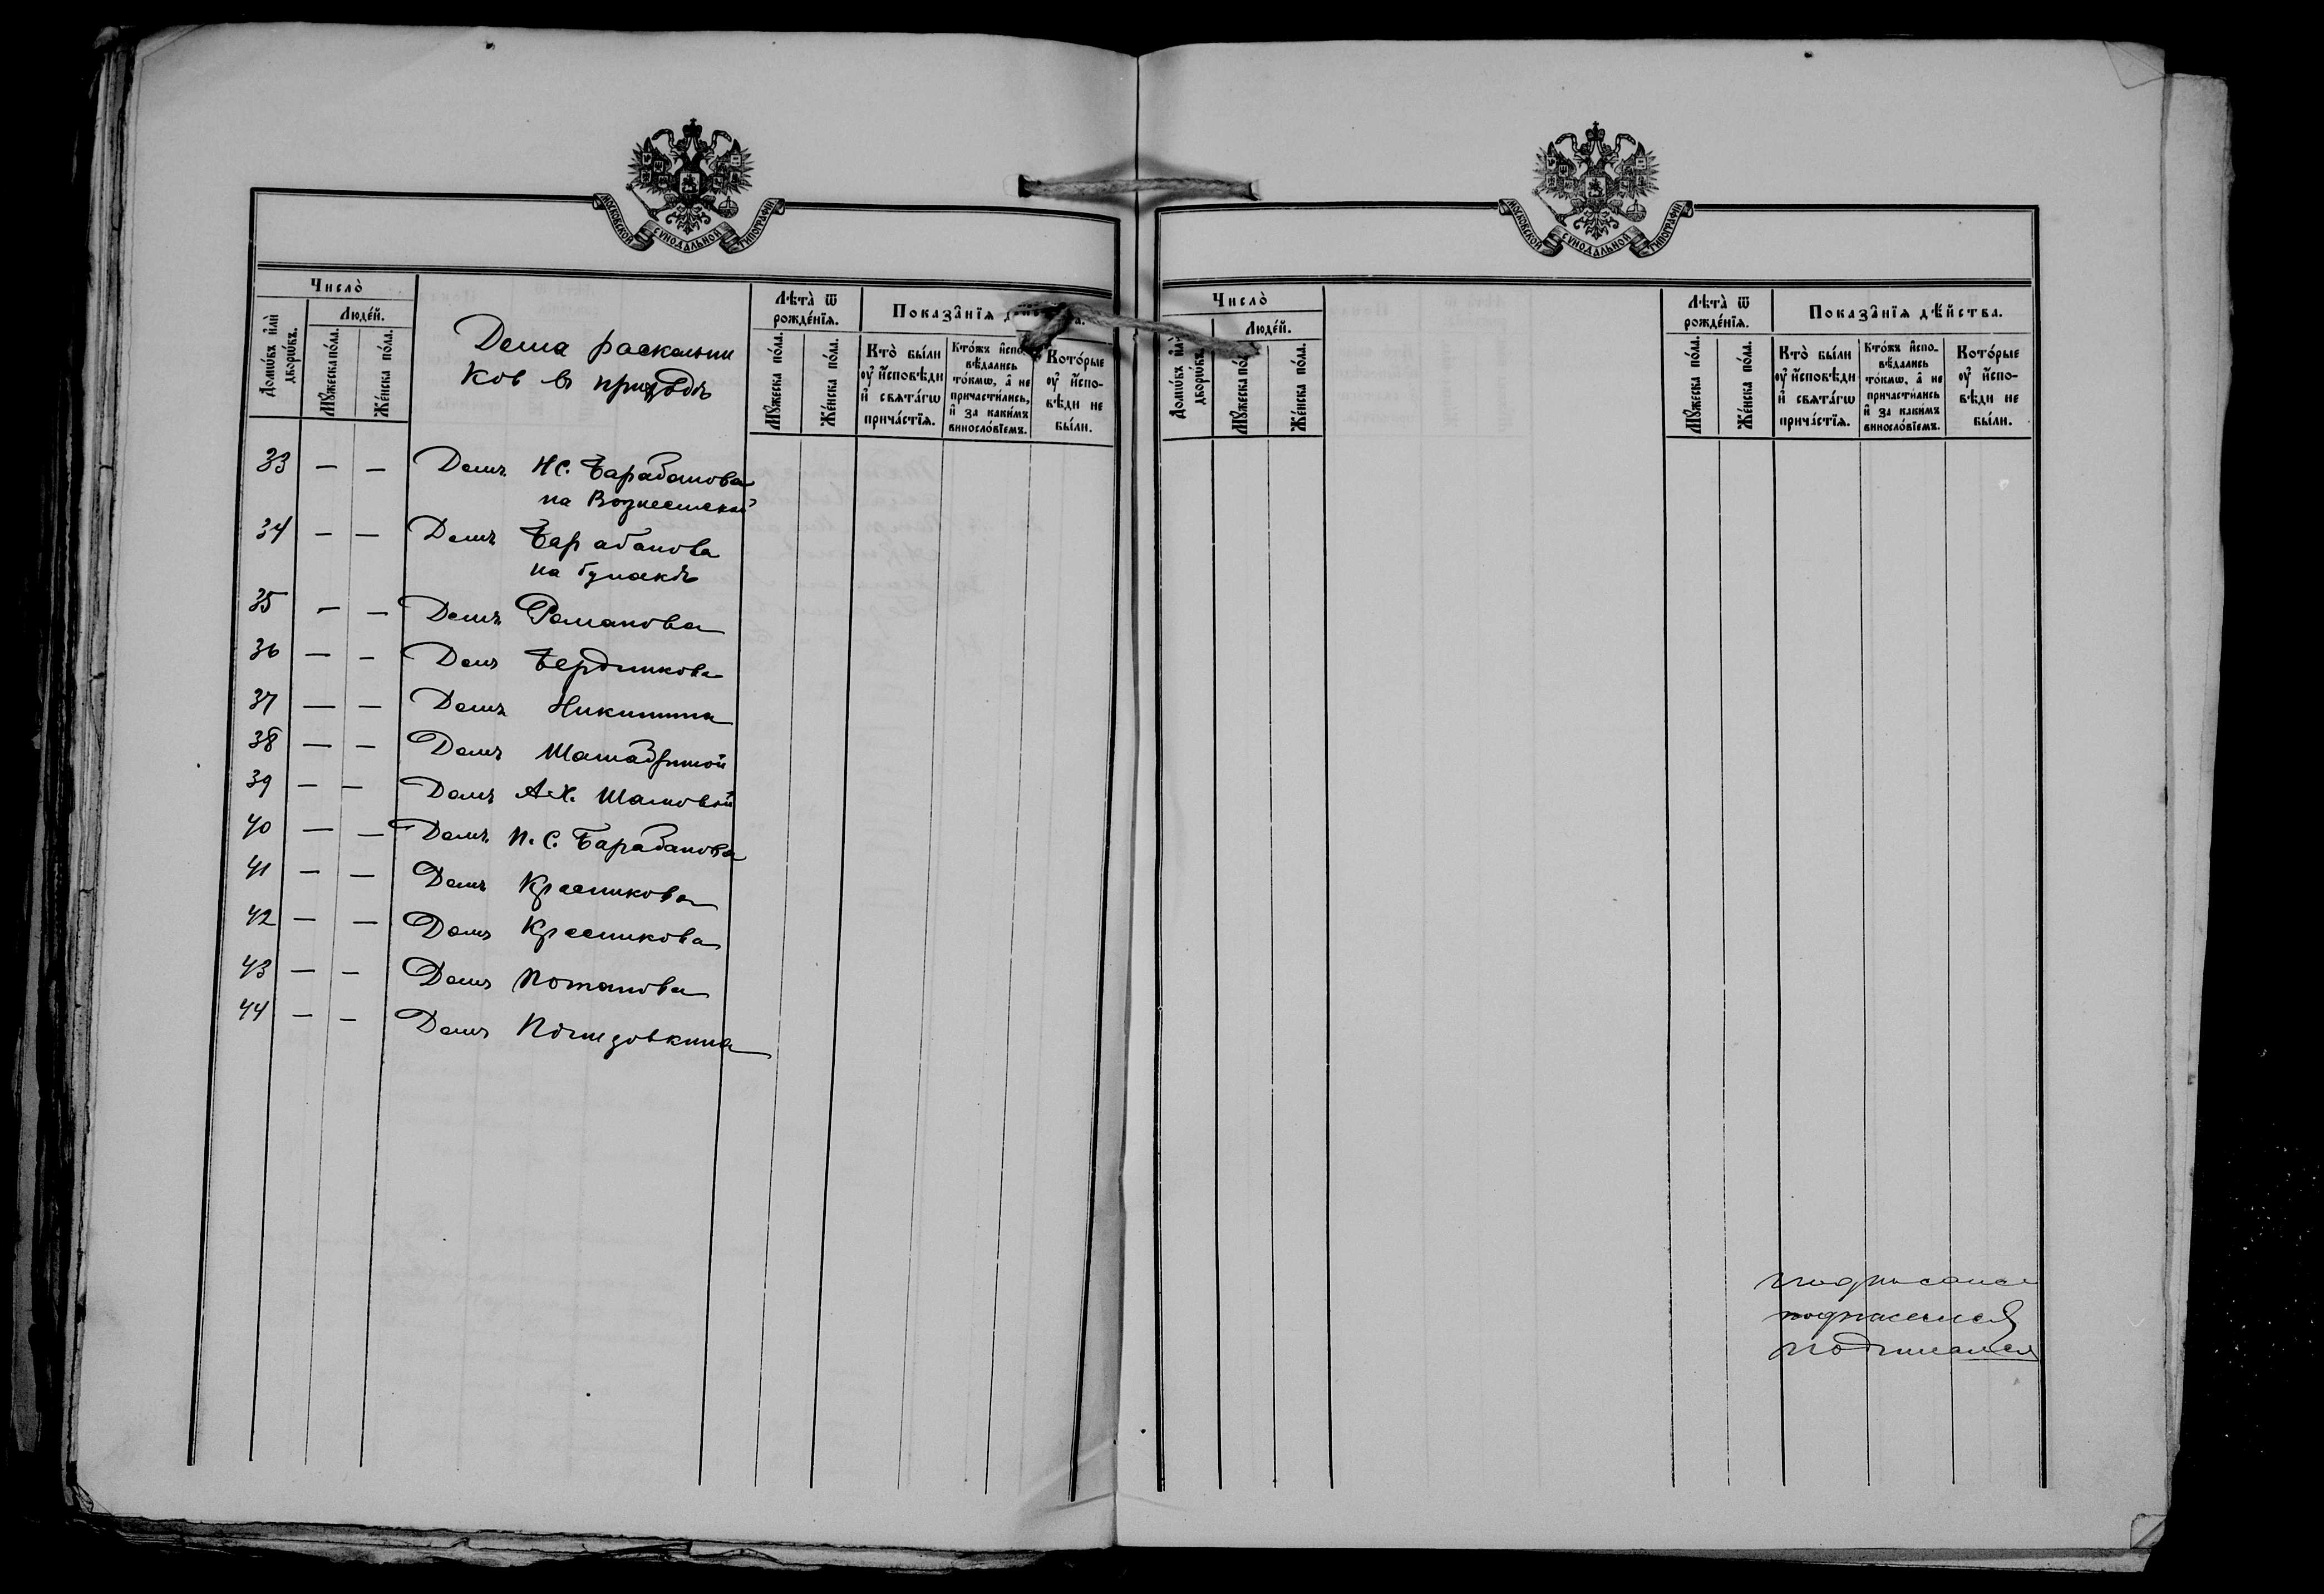 МОСКОВСКОЙ СУНОДАЛЬНОЙ ТИПОГРАФІИ
Число̀
Домѡ́въ и҆лѝ дворѡ́въ.
Люде́й.
Мꙋ́жеска по́ла.
Же́нска по́ла.
Дома раскольни
ков въ приходѣ
Лѣта̀ ѿ рожде́нїѧ.
Мꙋ́жеска по́ла.
Же́нска по́ла.
Показа̑нїѧ
Кто̀ бы́ли ᲂу҆ и҆сповѣ́ди и҆ свѧта́гѡ прича́стїѧ.
Кто́жъ и҆спо вѣ́дались то́кмѡ, а҆ не причасти́лись, и҆ за каки́мъ виносло́вїемъ.
Кото́рые ᲂу҆ и҆спо- вѣ́ди не бы́ли.
33 — — Домъ Н С. Барабанова
на Вознесенской
34 — — Домъ Барабанова
на бунакѣ
35 — — Домъ Романова
36 — — Домъ Бердникова
37 — — Домъ Никитина
38 — — Домъ Шашабриной
39 — — Домъ Шамовой
40 — — Домъ П. С. Барабанова
41 — — Домъ Красникова
42 — — Домъ Красникова
43 — — Домъ Потапова
44 — — Домъ
МОСКОВСКОЙ СУНОДАЛЬНОЙ ТИПОГРАФІИ
Число̀
Домѡ́въ и҆лѝ дворѡ́въ.
Люде́й.
Мꙋ́жеска по́ла.
Же́нска по́ла.
Лѣта̀ ѿ рожде́нїѧ.
Мꙋ́жеска по́ла.
Же́нска по́ла.
Показа̑нїѧ дѣ́йства.
Кто̀ бы́ли ᲂу҆ и҆сповѣ́ди и҆ свѧта́гѡ прича́стїѧ.
Кто́жъ и҆спо- вѣ́дались то́кмѡ, а҆ не причасти́лись и҆ за каки́мъ виносло́вїемъ.
Кото́рые ᲂу҆ и҆спо- вѣ́ди не бы́ли.